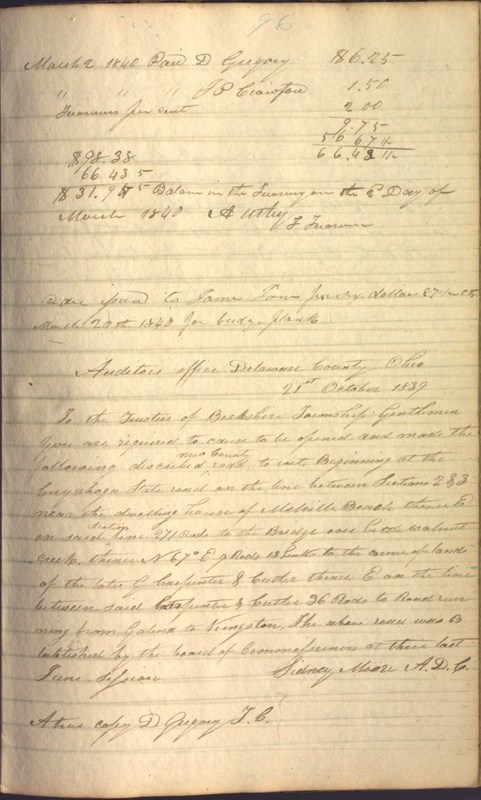 96
March 2 1840 Paid D Gregory $6.25
" " " J P Crawford 1.50
Treasurers per cent 2 00
9.75
5 6 67 1/2
$98.38 6 6.43 1/2
66 43 5
$31.95 5 Balance in the Treasury on the 2d Day of
March 1840 A Utley
T Treasurer
Order issued to James for six dollars 87 1/2 cts
March 20th 1840 for bridge plank
Auditors office Delaware County Ohio
21st October 1839
To the Trustees of Berkshire Township Gentlemen
You are required to cause to be opened and made the
following described new County road, to wit, Beginning at the
Cuyahoga State road on the line between Sections 2 & 3
near the dwelling house of Melvill Beach thence E
on said Section line 271 Rods to the Bridge over little walnut
creek. thence N 67° E 9 Rods 13 Links to the corner of lands
of the late G Carpenter & Cutler thence E on the line
between said Carpenter & Cutler 36 Rods to Road run
ning from Galena to Kingston, The above road was es
tablished by the board of Commissioners at their last
June Session Sidney Moore A. D. C.
A true copy D Gregory T. C.